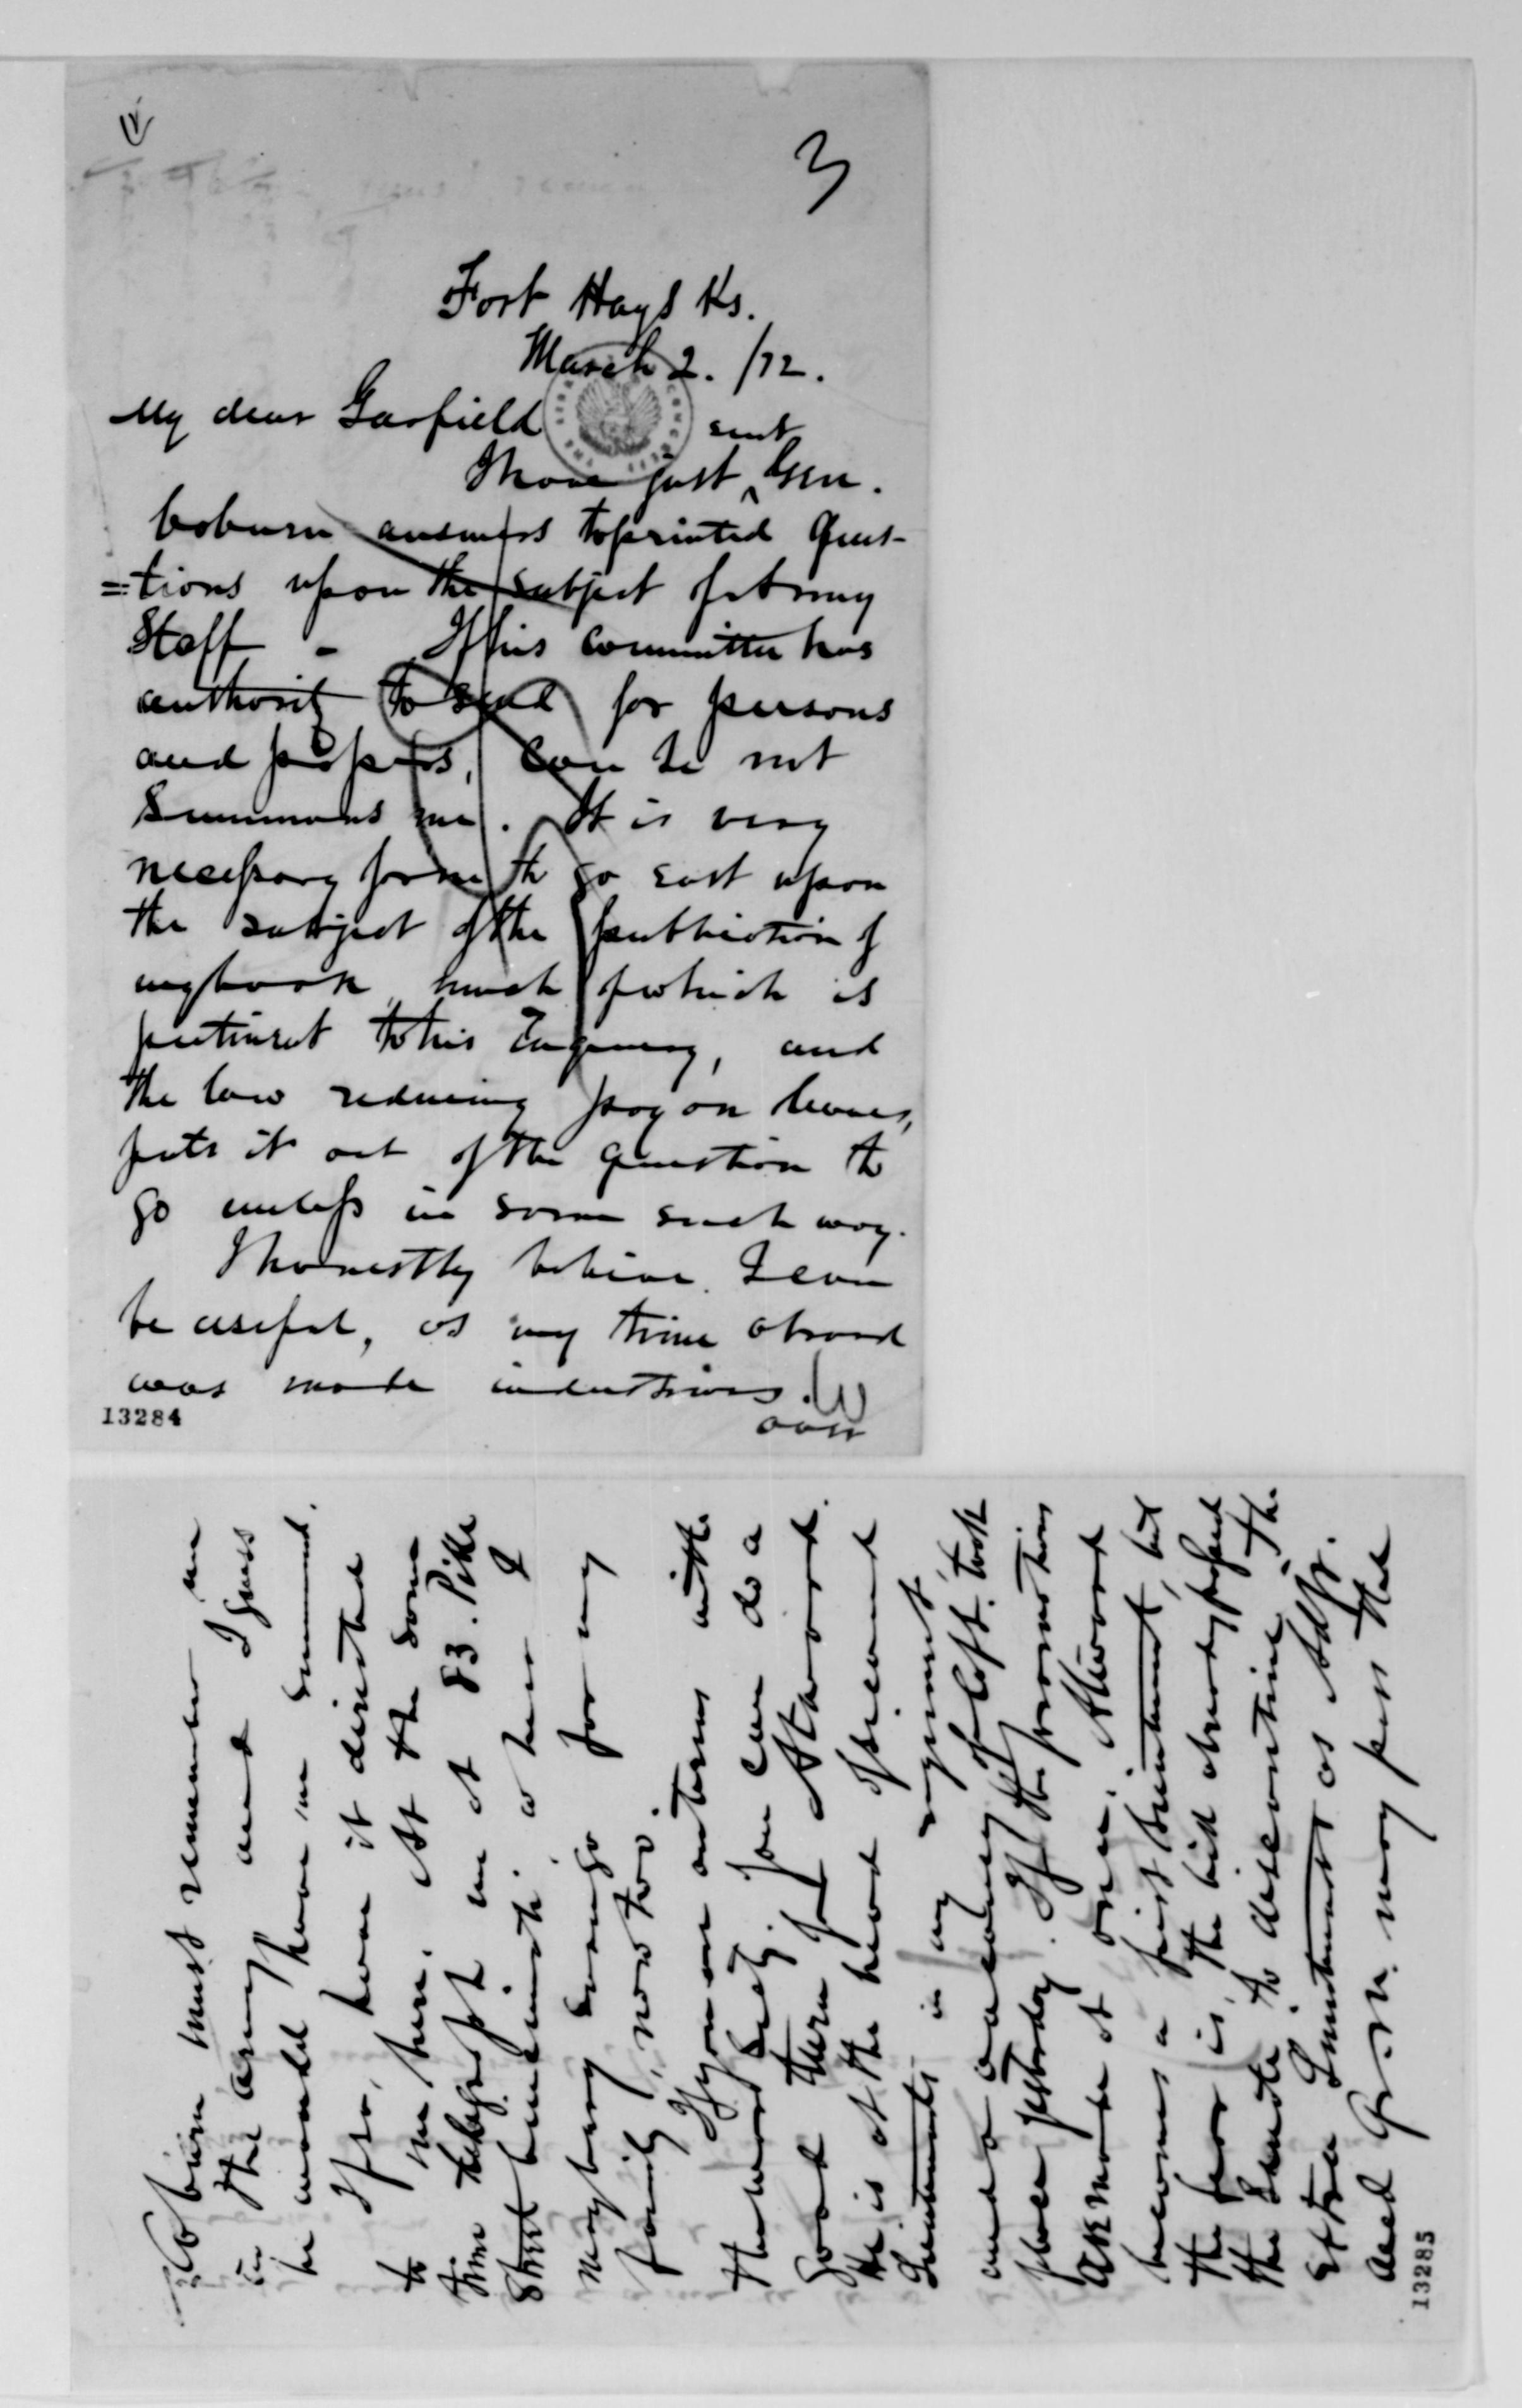 3
Fort Hays Ks.
March 2. /72.
My dear Garfield
sent
I have just ^ Gen.
Coburn answers to printed Ques-
=tions upon the subject of Army
Staff - If his committee has
authority to send for persons
and papers, can he not
Summons me. It is very
necessary for me to go east upon
the subject of the publication of
my book much of which is
pertinent to his Enquiry, and
the law reducing pay on leaves,
puts it out of the question to
go unless in some such way.
I honestly believe I can
be useful, as my time abroad
was made industrious.
over
13284
Coburn must remember me
in the army and I guess
he would have me summoned.
If so, have it directed
to me here. At the same
time telegraph me at 83. Pike
Street Cincinnati where I
may bring for my
family, now too.
If you are on terms with
the War Secty. you can do a
good turn for Atwood.
He is at the head of second
Lieutenants in my regiment,
and a vacancy of Capt. took
place yesterday. If the promotion
are made at once, Atwood
becomes a first Lieutenant, but
the fear is, the bill already passed
the Senate to discontinue the
Extra Lieutenant as Adjt.
and Q.M. may pass the
13285